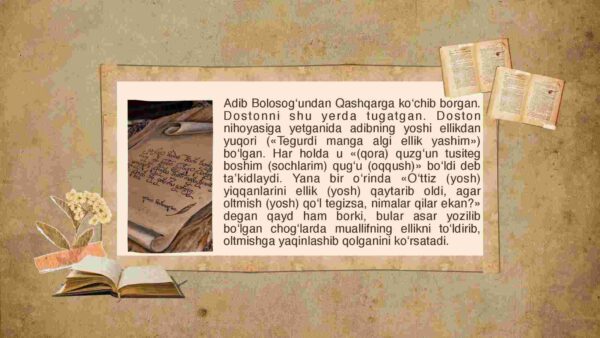 Adib Bolosog‘undan Qashqarga ko‘chib borgan.
Dostonni shu yerda tugatgan. Doston
nihoyasiga yetganida adibning yoshi ellikdan
yuqori («Tegurdi manga algi ellik yashim»)
bo‘lgan. Har holda u «(qora) quzg‘un tusiteg
boshim (sochlarim) qug‘u (oqqush)» bo‘ldi deb
ta’kidlaydi. Yana bir o‘rinda «O‘ttiz (yosh)
yiqqanlarini ellik (yosh) qaytarib oldi, agar
oltmish (yosh) qo‘l tegizsa, nimalar qilar ekan?»
degan qayd ham borki, bular asar yozilib
bo‘lgan chog‘larda muallifning ellikni to‘ldirib,
oltmishga yaqinlashib qolganini ko‘rsatadi.